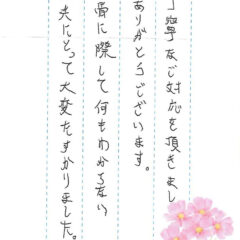 丁寧なご対応を頂きまし
ありがとうございます。
に際して何もわからない
夫にとって大変たすかりました。